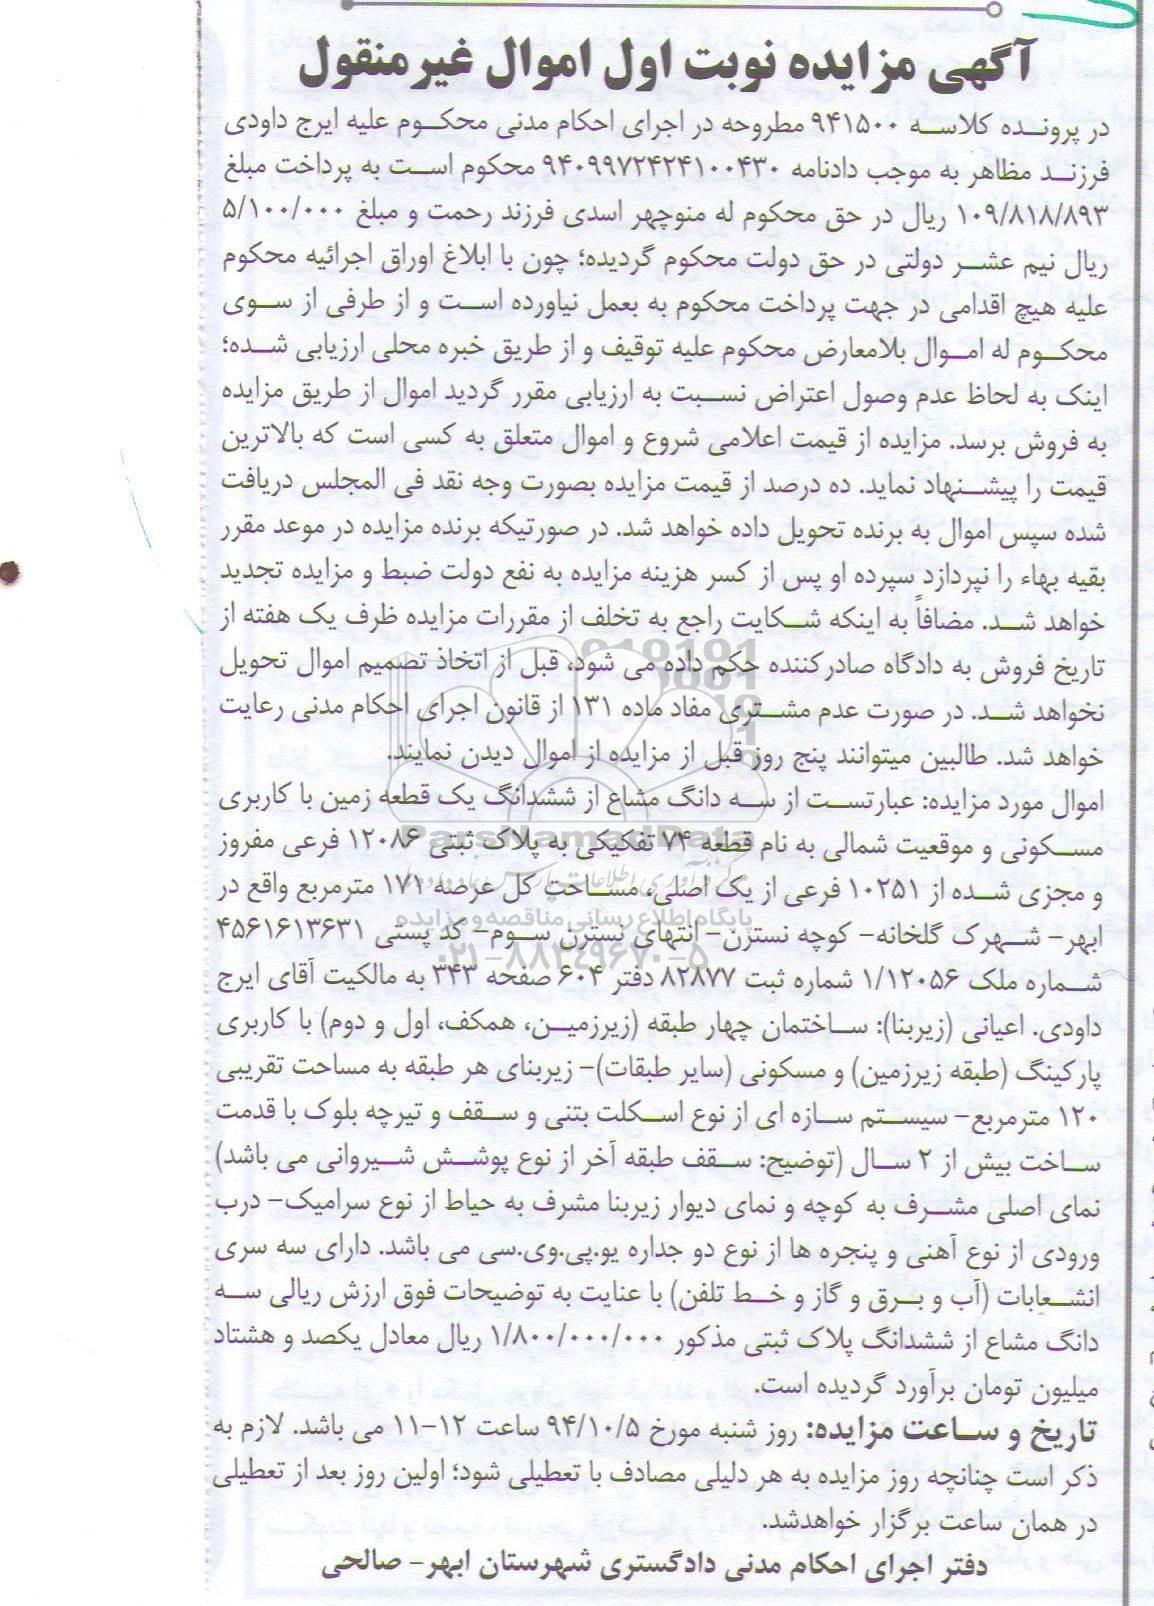 آگهی مزایده نوبت اول اموال غیرمنقول
در پرونده کلاسه ۹۴۱۵۰۰ مطروحه در اجرای احکام مدنی محکوم علیه ایرج داودی
فرزند مظاهر به موجب دادنامه ۹۴۰۹۹۷۲۴۲۴۱۰۰۴۳۰ محکوم است به پرداخت مبلغ
۱۰۹/۸۱۸/۸۹۳ ریال در حق محکوم له منوچهر اسدی فرزند رحمت و مبلغ ۵/۱۰۰/۰۰۰
ریال نیم عشر دولتی در حق دولت محکوم گردیده؛ چون با ابلاغ اوراق اجرائیه محکوم
علیه هیچ اقدامی در جهت پرداخت محکوم به بعمل نیاورده است و از طرفی از سوی
محکوم له اموال بلامعارض محکوم علیه توقیف و از طریق خبره محلی ارزیابی شده؛
اینک به لحاظ عدم وصول اعتراض نسبت به ارزیابی مقرر گردید اموال از طریق مزایده
به فروش برسد. مزایده از قیمت اعلامی شروع و اموال متعلق به کسی است که بالاترین
قیمت را پیشنهاد نماید. ده درصد از قیمت مزایده بصورت وجه نقد فی المجلس دریافت
شده سپس اموال به برنده تحویل داده خواهد شد. در صورتیکه برنده مزایده در موعد مقرر
بقیه بهاء را نپردازد سپرده او پس از کسر هزینه مزایده به نفع دولت ضبط و مزایده تجدید
خواهد شد. مضافاً به اینکه شکایت راجع به تخلف از مقررات مزایده ظرف یک هفته از
تاریخ فروش به دادگاه صادرکننده حکم داده می شود، قبل از اتخاذ تصمیم اموال تحویل
نخواهد شد. در صورت عدم مشتری مفاد ماده ۱۳۱ از قانون اجرای احکام مدنی رعایت
خواهد شد. طالبین میتوانند پنج روز قبل از مزایده از اموال دیدن نمایند.
اموال مورد مزایده: عبارتست از سه دانگ مشاع از ششدانگ یک قطعه زمین با کاربری
ParsNamadData
مسکونی و موقعیت شمالی به نام قطعه ۷۴ تفکیکی به پلاک ثبتی ۱۲۰۸۶ فرعی مفروز
و مجزی شده از ۱۰۲۵۱ فرعی از یک اصلی، مساحت کل عرصه ۱۷۱ مترمربع واقع در
پایگاه اطلاع رسانی مناقصه و مزایده
ابهر- شهرک گلخانه- کوچه نسترن- انتهای نسترن سوم- کد پستی ۴۵۶۱۶۱۳۶۳۱
۰۲۱-۸۸۳۴۹۶۷۰-۵
شماره ملک ۱/۱۲۰۵۶ شماره ثبت ۸۲۸۷۷ دفتر ۶۰۴ صفحه ۳۴۳ به مالکیت آقای ایرج
داودی. اعیانی (زیربنا): ساختمان چهار طبقه (زیرزمین، همکف، اول و دوم) با کاربری
پارکینگ (طبقه زیرزمین) و مسکونی (سایر طبقات)- زیربنای هر طبقه به مساحت تقریبی
۱۲۰ مترمربع- سیستم سازه ای از نوع اسکلت بتنی و سقف و تیرچه بلوک با قدمت
ساخت بیش از ۲ سال (توضیح: سقف طبقه آخر از نوع پوشش شیروانی می باشد)
نمای اصلی مشرف به کوچه و نمای دیوار زیربنا مشرف به حیاط از نوع سرامیک- درب
ورودی از نوع آهنی و پنجره ها از نوع دو جداره یو.پی.وی.سی می باشد. دارای سه سری
انشعابات (آب و برق و گاز و خط تلفن) با عنایت به توضیحات فوق ارزش ریالی سه
دانگ مشاع از ششدانگ پلاک ثبتی مذکور ۱/۸۰۰/۰۰۰/۰۰۰ ریال معادل یکصد و هشتاد
میلیون تومان برآورد گردیده است.
تاریخ و ساعت مزایده: روز شنبه مورخ ۹۴/۱۰/۵ ساعت ۱۲-۱۱ می باشد. لازم به
ذکر است چنانچه روز مزایده به هر دلیلی مصادف با تعطیلی شود؛ اولین روز بعد از تعطیلی
در همان ساعت برگزار خواهدشد.
دفتر اجرای احکام مدنی دادگستری شهرستان ابهر- صالحی